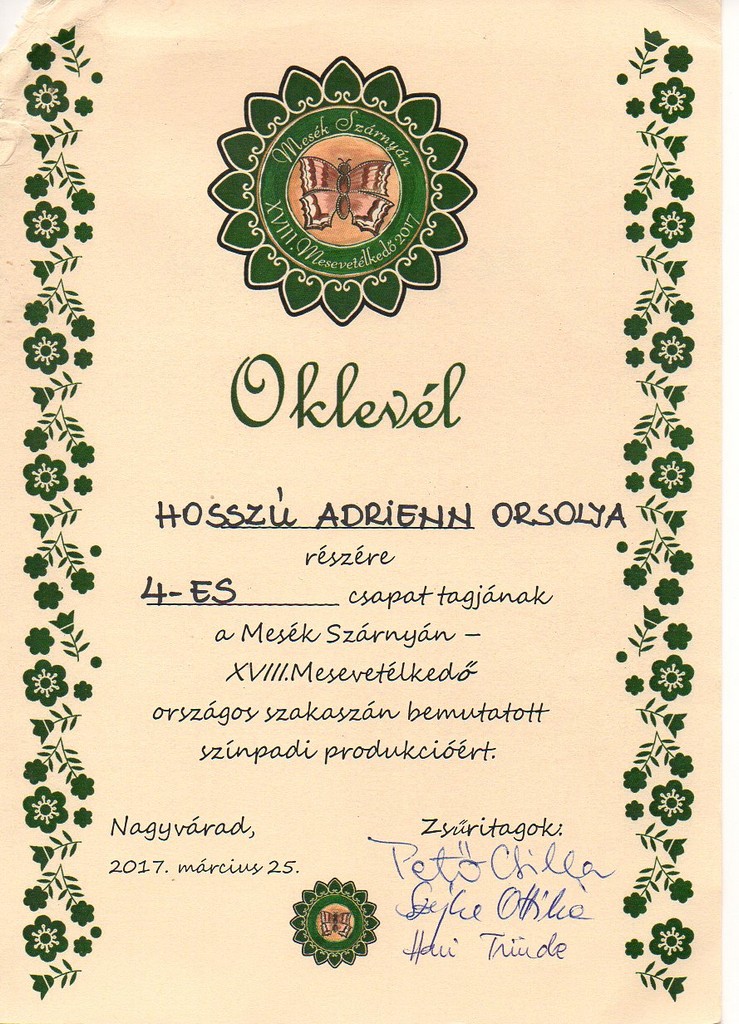 Mesék Szárnyán
XVIII. Mesevetélkedő 2017
Oklevél
HOSSZÚ ADRIENN ORSOLYA
részére
4-ES csapat tagjának
a Mesék Szárnyán –
XVIII.Mesevetélkedő
országos szakaszán bemutatott
színpadi produkcióért.
Nagyvárad,
Zsűritagok:
2017. március 25.
Pető Csilla